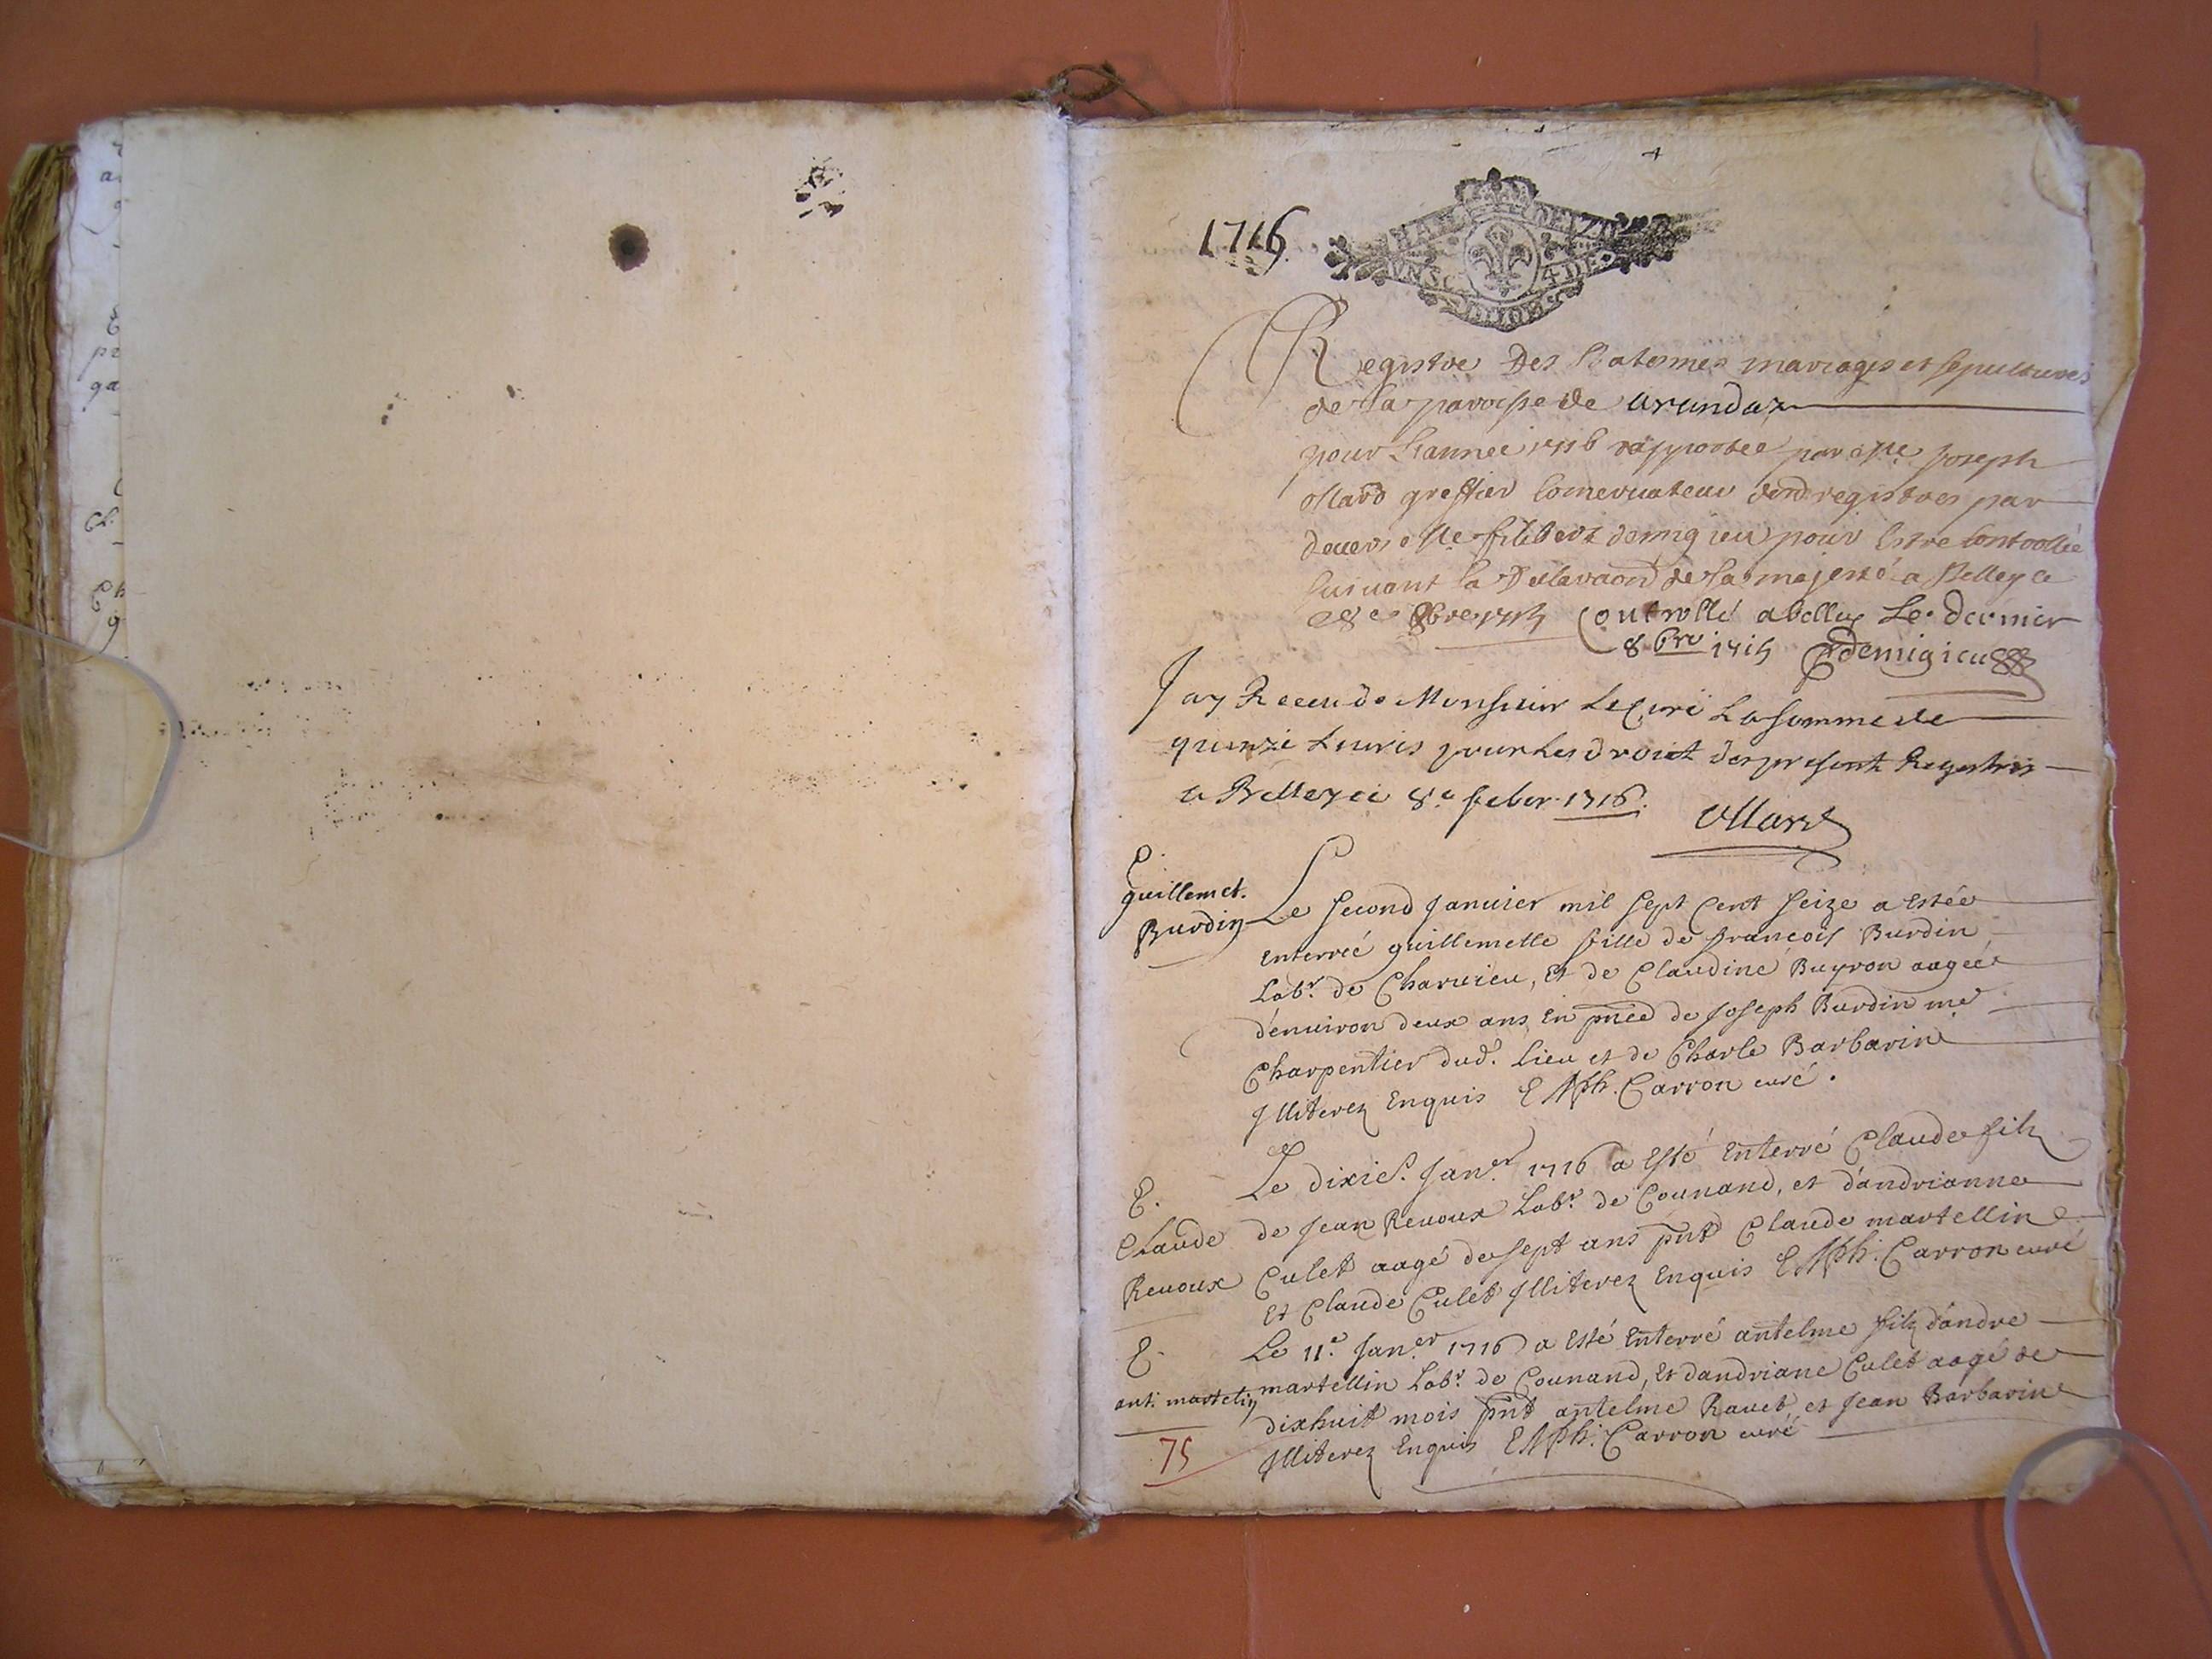 1716
DEUX
4 DE
DIJON
Registre Des Batesmes mariages et sepultures
de la paroisse de arandaz
pour L'année 1716 rapportee par Me Joseph
ollard greffier Conservateur desd registres par
devers Me filibert demigieu pour Estre controllée
suivant la Declaraon de sa majesté a Belley ce
28e 8bre 1715 Controllé a belley Le dernier
8bre 1715 Demigieu
Jay Receu de Monsieur Le Curé La somme de
quinze Livres pour Les droict des present Registres
a Belley ce 8e feber 1716.
Ollard
E.
guillemet.
Burdin
Le second Janvier mil sept cent seize a estée
enterreé guillemette fille de françois Burdin
Labr. de Charvieu, et de Claudine Buyron aageé
d'environ deux ans en pñce de Joseph Burdin me
Charpentier dud. lieu et de Charle Barbarin
Illiterez Enquis Carron curé.
E.
Claude
Revoux
Le dixie. Janer 1716 a esté enterré Claude filz
de Jean Revoux Labr. de Counand, et d'andrianne
Culet aagé de sept ans pñt Claude martellin
et Claude Culet Illiterez Enquis Carron curé
E.
ant. martelin
Le 11e. Janer 1716 a esté enterré antelme filz d'andre
martellin Labr. de Counand, et dandriane Culet aagé de
dixhuit mois pñt antelme Ravet et Jean Barbarin
Illiterez Enquis Carron curé
75